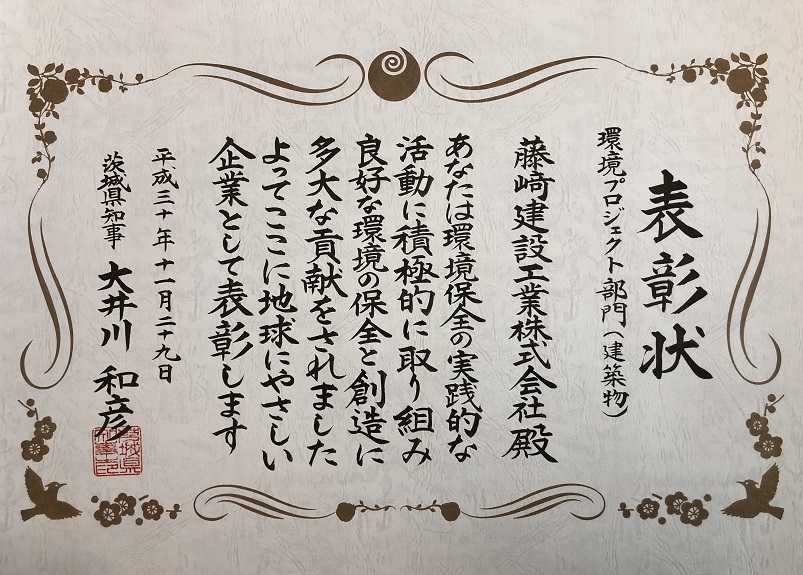 表彰状
環境プロジェクト部門(建築物)
藤崎建設工業株式会社殿
あなたは環境保全の実践的な
活動に積極的に取り組み
良好な環境の保全と創造に
多大な貢献をされました
よってここに地球にやさしい
企業として表彰します
平成三十年十一月二十九日
茨城県知事 大井川和彦
茨城県知事印